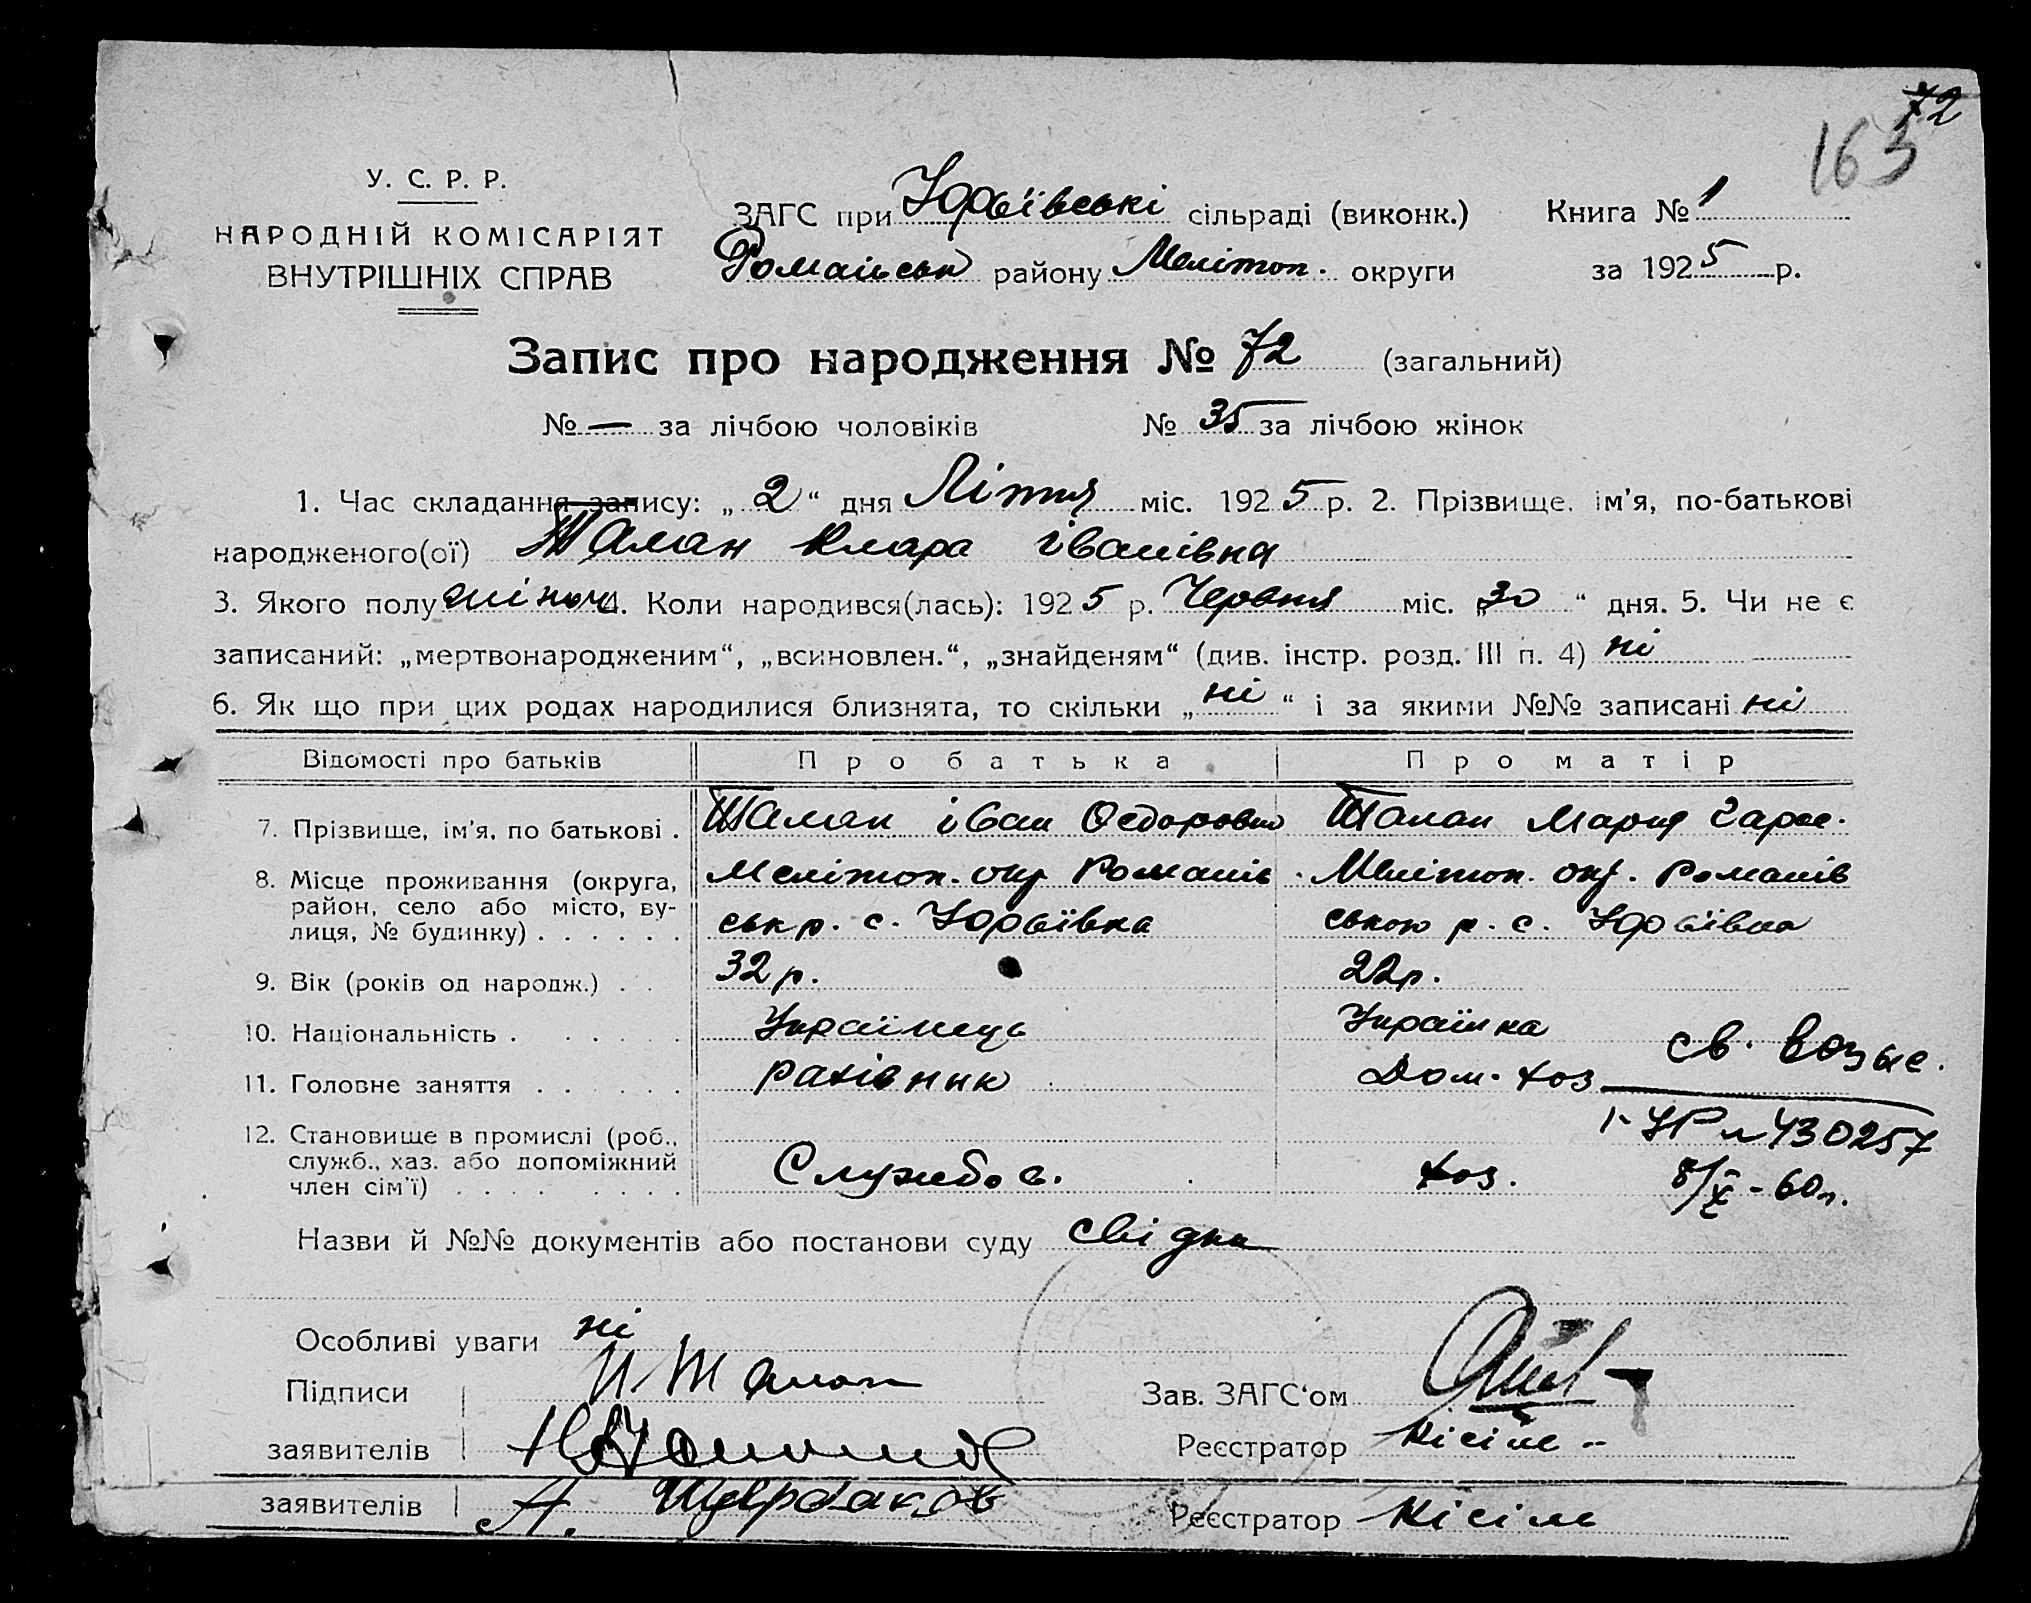 72
163
У. С. Р. Р.
НАРОДНІЙ КОМІСАРІЯТ
ВНУТРІШНІХ СПРАВ
ЗАГС при Юрьївські сільраді (виконк.) Книга № 1
Романівськ району Мелітоп. округи за 1925 р.
Запис про народження № 72 (загальний)
№ — за лічбою чоловіків № 35 за лічбою жінок
1. Час складання запису: „2“ дня Літня міс. 1925 р. 2. Прізвище, ім'я, по-батькові
народженого(ої) Таман Клара Іванівна
3. Якого полу жіноч 4. Коли народився(лась): 1925 р. Червня міс. „30“ дня. 5. Чи не є
записаний: „мертвонародженим“, „всиновлен.“, „знайденям“ (див. інстр. розд. III п. 4) ні
6. Як що при цих родах народилися близнята, то скільки „ні“ і за якими №№ записані ні
Відомості про батьків Про батька Про матір
7. Прізвище, ім'я, по батькові . Таман Іван Федорович Таман Мария
8. Місце проживання (округа, Мелітоп. окр Романів Мелітоп. окр. Романів
район, село або місто, ву- ськ р. с. Юрьївка ського р. с. Юрьївка
лиця, № будинку) . . . . . .
9. Вік (років од народж.) . . 32 р. 22 р.
10. Національність . . . . . . Українець Українка
св. возыс.
11. Головне заняття . . . . . рахівник Дом. хоз
12. Становище в промислі (роб., І-УР № 430257
служб., хаз. або допоміжний Службов. хоз. 8/X - 60 г.
член сім'ї) . . . . . . . . .
Назви й №№ документів або постанови суду свідки
Особливі уваги ні
Підписи И. Таман Зав. ЗАГС'ом
заявителів Реєстратор Кісіль
заявителів А. Щербаков Реєстратор Кісіль